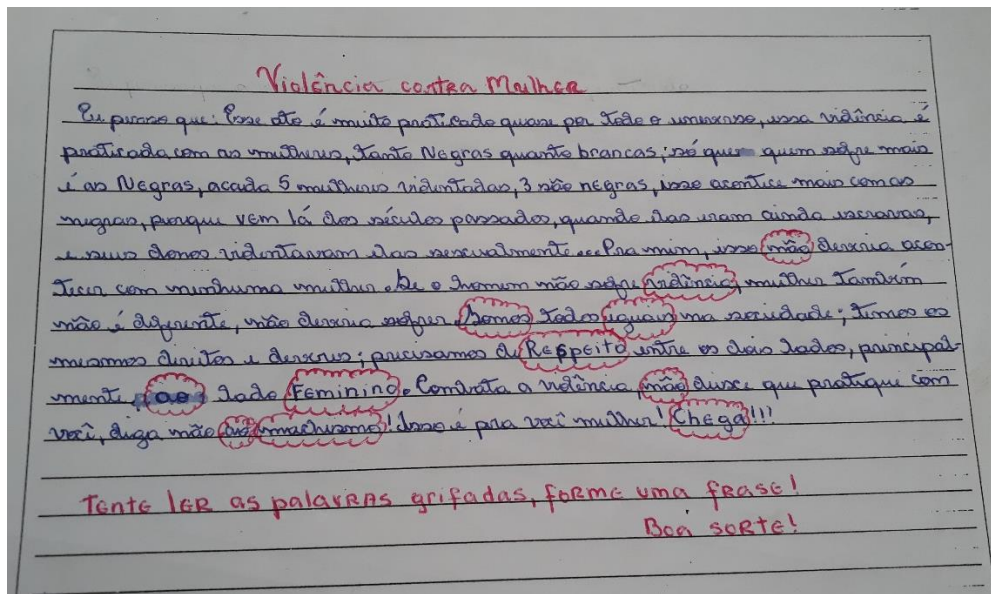 Violência contra Mulher
Eu penso que: Esse ato é muito praticado quase por todo o universo, essa violência é
praticada com as mulheres, tanto Negras quanto brancas; só que quem sofre mais
é as Negras, acada 5 mulheres violentadas, 3 são negras, isso acontece mais com as
negras, porque vem lá dos séculos passados, quando elas eram ainda escravas,
e seus donos violentavam elas sexualmente... Pra mim, isso não deveria acon-
tecer com nenhuma mulher. Se o homem não sofre violência, mulher também
não é diferente, não deveria sofrer. Somos todos iguais na sociedade; temos os
mesmos direitos e deveres; precisamos de Respeito entre os dois lados, principal-
mente, ao lado Feminino. Combata a violência, não deixe que pratique com
você, diga não ao machismo! Isso é pra você mulher! Chega!!!
Tente ler as palavras grifadas, forme uma frase!
Boa sorte!